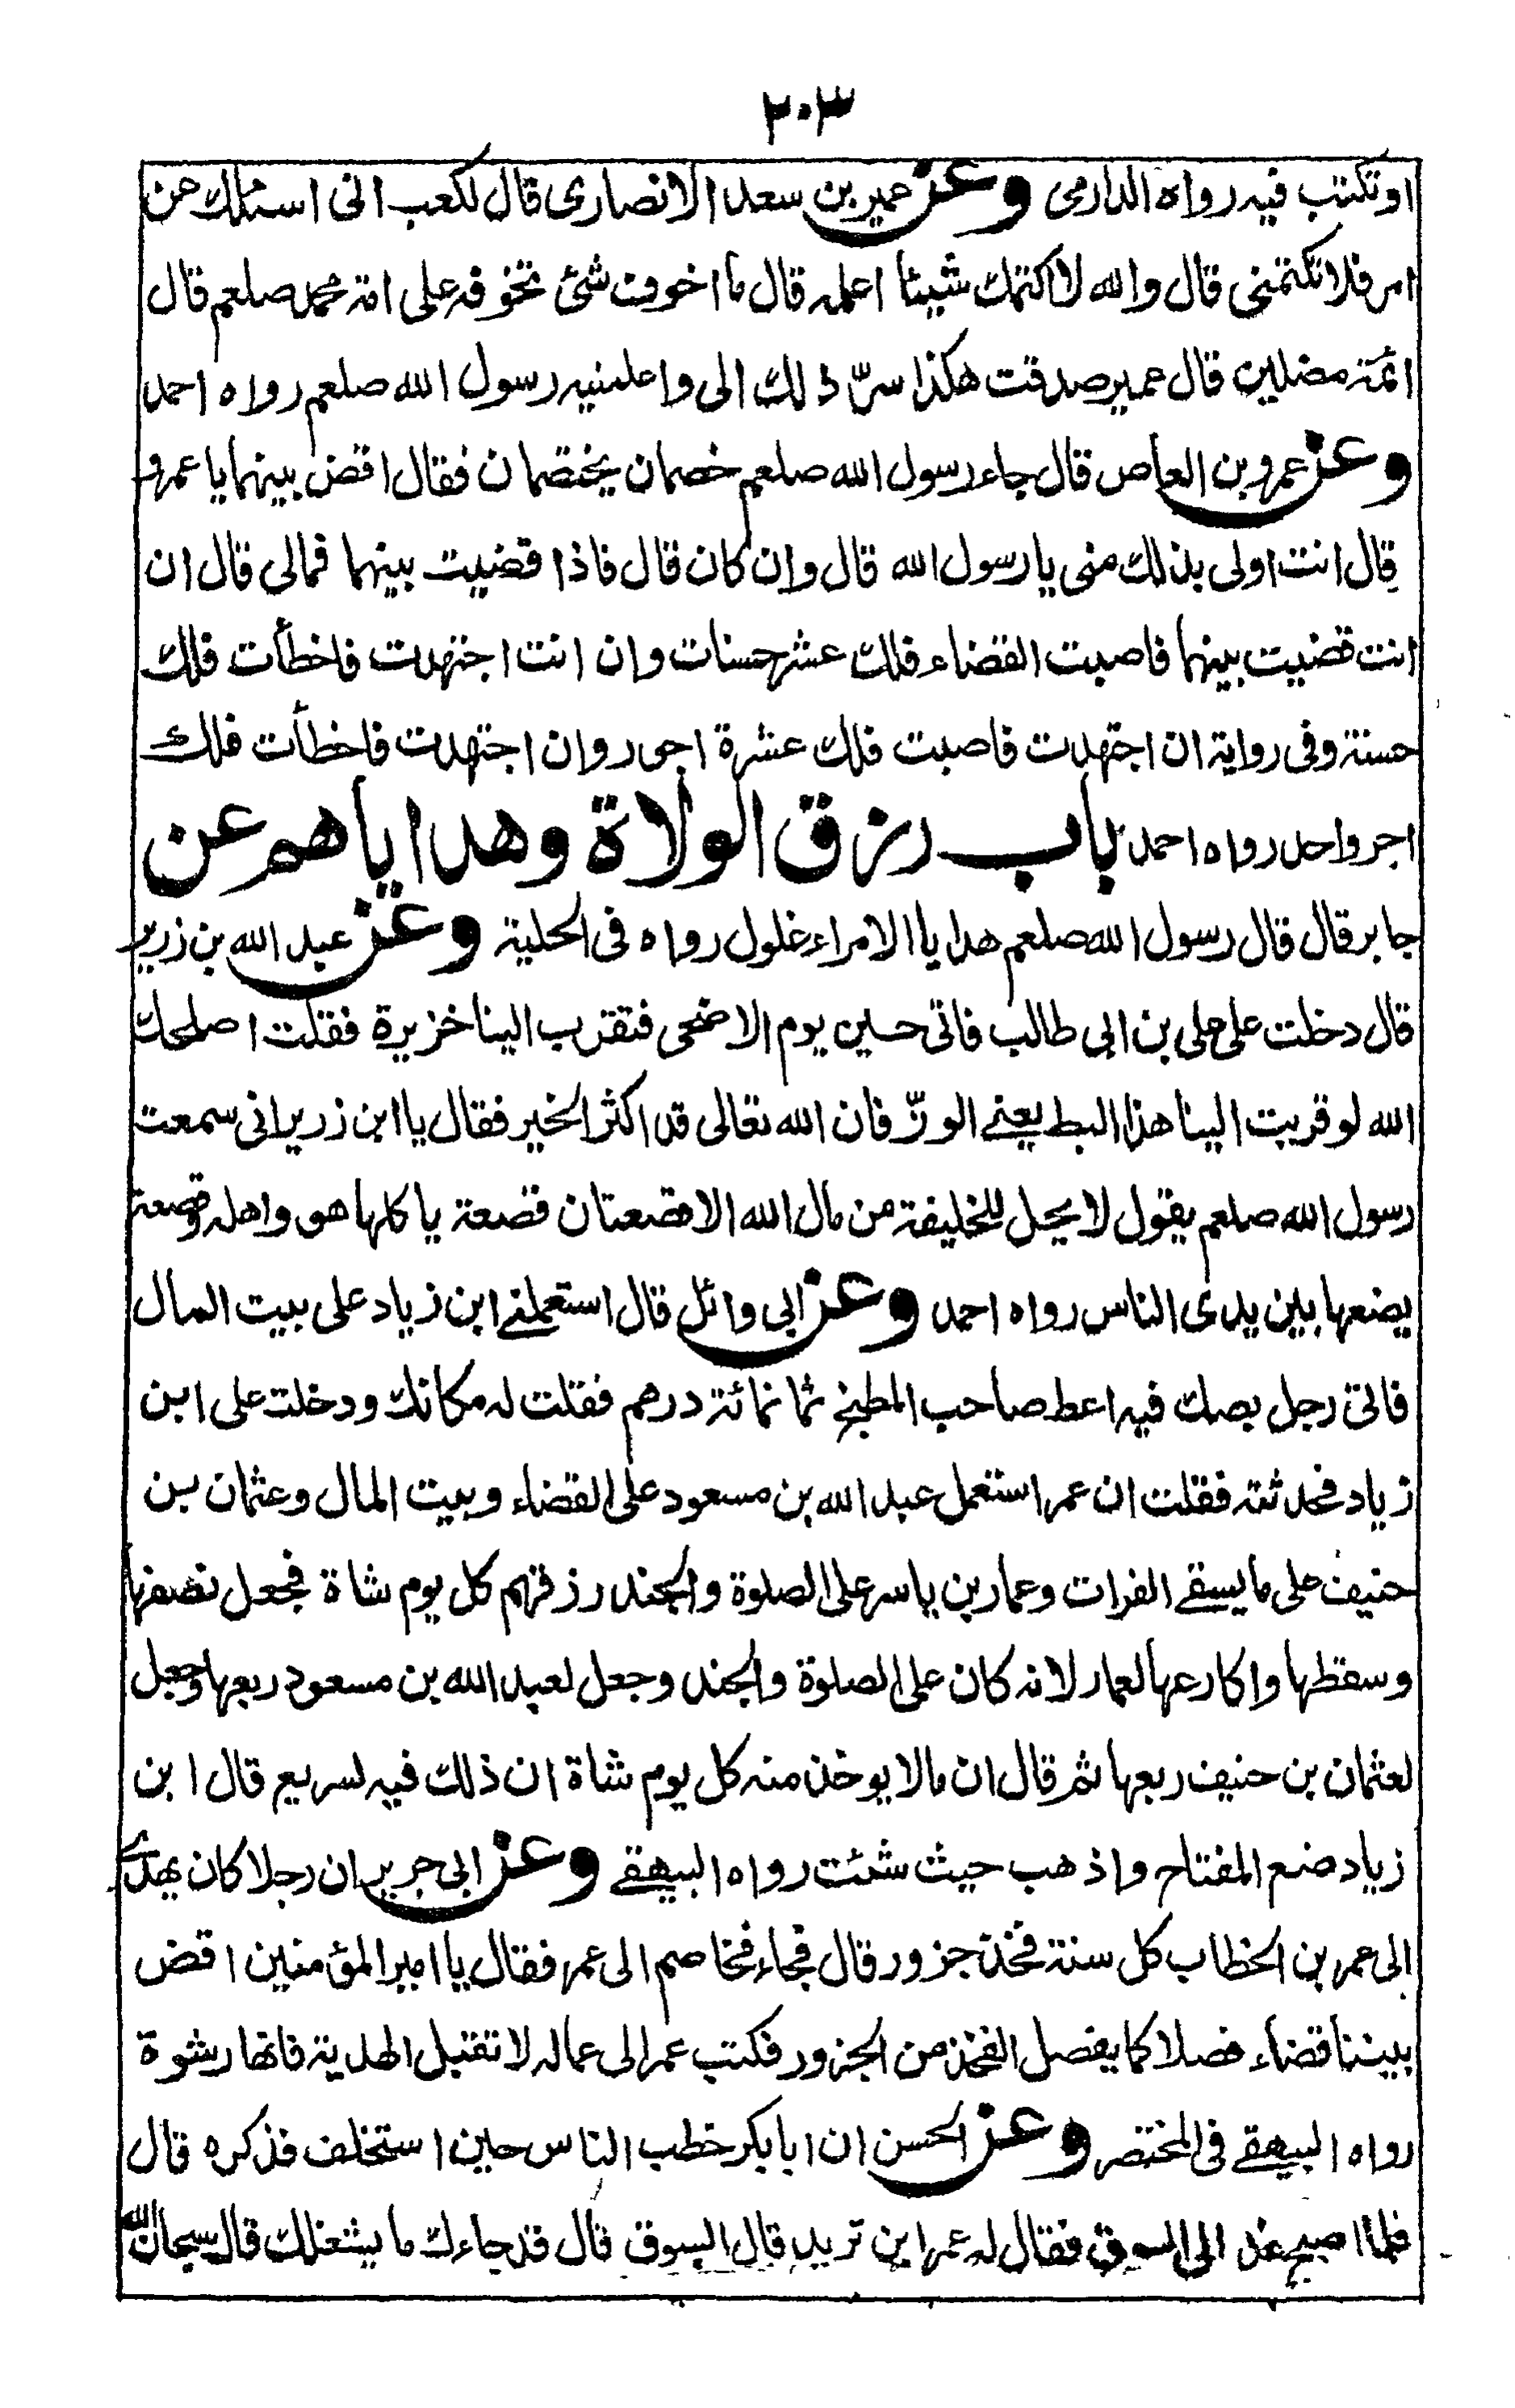 ٣٠٣
او تكتب فيه رواه الدارمي وعن عمير بن سعد الانصاري قال لكعب اني اسئلك عن
امر فلا تكتمني قال والله لا اكتمك شيئا اعلمه قال ما اخوف شئ تخوفه على امة محمد صلعم قال
ائمة مضلين قال عمير صدقت هكذا سرّ ذلك الى واعلمنيه رسول الله صلعم رواه احمد
وعن عمرو بن العاص قال جاء رسول الله صلعم خصمان يختصمان فقال اقض بينهما يا عمرو
قال انت اولى بذلك مني يا رسول الله قال وان كان قال فاذا قضيت بينهما فمالي قال ان
انت قضيت بينهما فاصبت القضاء فلك عشر حسنات وان انت اجتهدت فاخطأت فلك
حسنة وفي رواية ان اجتهدت فاصبت فلك عشرة اجور وان اجتهدت فاخطأت فلك
اجر واحد رواه احمد باب رزق الولاة وهداياهم عن
جابر قال قال رسول الله صلعم هدايا الامراء غلول رواه في الحلية وعن عبد الله بن زرير
قال دخلت على علي بن ابي طالب فاتى حسين يوم الاضحى فتقرب الينا خزيرة فقلت اصلحك
الله لو قربت الينا هذا البط يعني الوزّ فان الله تعالى قد اكثر الخير فقال يا ابن زرير اني سمعت
رسول الله صلعم يقول لا يحل للخليفة من مال الله الا قصعتان قصعة ياكلها هو واهله وقصعة
يضعها بين يدى الناس رواه احمد وعن ابي وائل قال استعملني ابن زياد على بيت المال
فاتى رجل بصك فيه اعط صاحب المطبخ ثمانمائة درهم فقلت له مكانك ودخلت على ابن
زياد فحدثته فقلت ان عمر استعمل عبد الله بن مسعود على القضاء وبيت المال وعثمان بن
حنيف على ما يسقى الفرات وعمار بن ياسر على الصلوة والجند رزقهم كل يوم شاة فجعل نصفها
وسقطها واكارعها لعمار لانه كان على الصلوة والجند وجعل لعبد الله بن مسعود ربعها وجعل
لعثمان بن حنيف ربعها ثم قال ان مالا يوخذ منه كل يوم شاة ان ذلك فيه لسريع قال ابن
زياد ضع المفتاح واذهب حيث شئت رواه البيهقي وعن ابي جرير ان رجلا كان يهدى
الى عمر بن الخطاب كل سنة فخذ جزور قال فجاء فخاصم الى عمر فقال يا امير المؤمنين اقض
بيننا قضاء فصلا كما يفصل الفخذ من الجزور فكتب عمر الى عماله لا تقبل الهدية فانها رشوة
رواه البيهقي في المختصر وعن الحسن ان ابا بكر خطب الناس حين استخلف فذكره قال
فلما اصبح غدا الى السوق فقال له عمر اين تريد قال السوق قال قد جاءك ما يشغلك قال سبحان الله